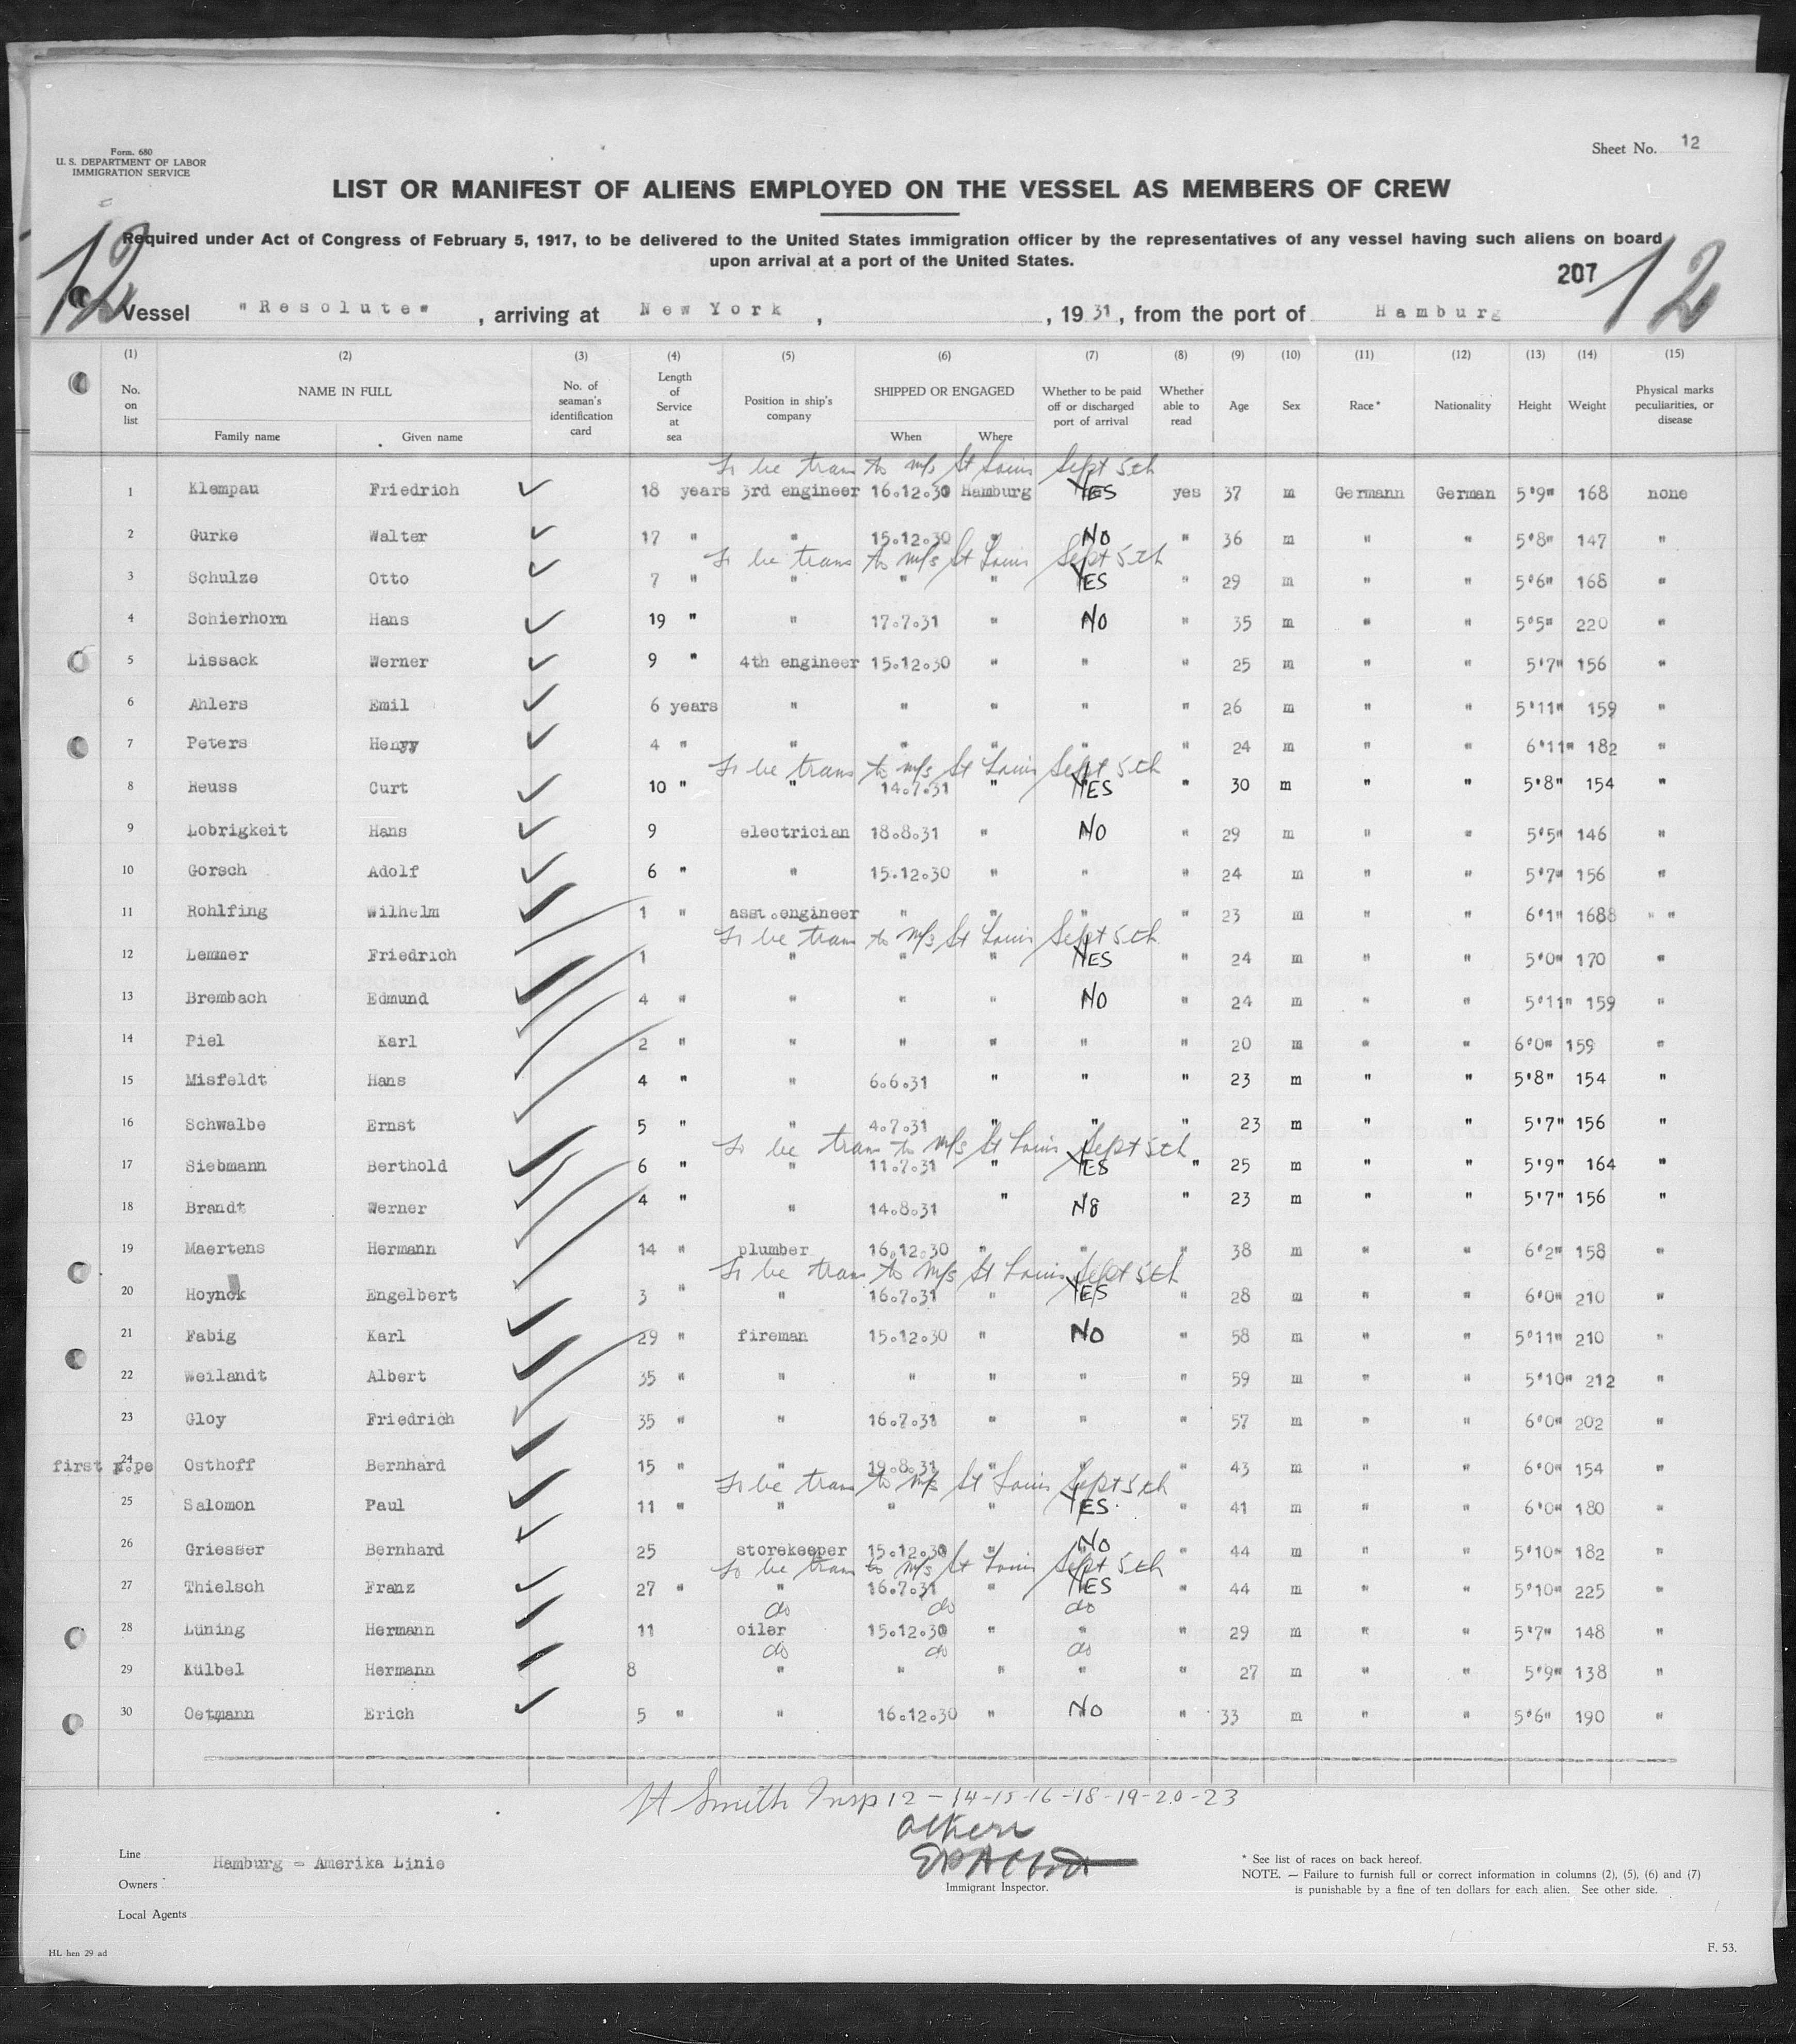 Form. 680
U. S. DEPARTMENT OF LABOR
IMMIGRATION SERVICE
Sheet No. 12
LIST OR MANIFEST OF ALIENS EMPLOYED ON THE VESSEL AS MEMBERS OF CREW
Required under Act of Congress of February 5, 1917, to be delivered to the United States immigration officer by the representatives of any vessel having such aliens on board
upon arrival at a port of the United States.
12 207 12
Vessel "Resolute", arriving at New York, , 1931, from the port of Hamburg
(1) (2) (3) (4) (5) (6) (7) (8) (9) (10) (11) (12) (13) (14) (15)
No. on list NAME IN FULL No. of seaman's identification card Length of Service at sea Position in ship's company SHIPPED OR ENGAGED Whether to be paid off or discharged port of arrival Whether able to read Age Sex Race* Nationality Height Weight Physical marks peculiarities, or disease
Family name Given name When Where
To be trans to M/s St Louis Sept 5th
1 Klempau Friedrich 18 years 3rd engineer 16.12.30 Hamburg YES yes 37 m Germann German 5'9" 168 none
2 Gurke Walter 17 " " 15.12.30 " No " 36 m " " 5'8" 147 "
To be trans to M/s St Louis Sept 5th
3 Schulze Otto 7 " " " " YES " 29 m " " 5'6" 168 "
4 Schierhorn Hans 19 " " 17.7.31 " No " 35 m " " 5'5" 220 "
5 Lissack Werner 9 " 4th engineer 15.12.30 " " " 25 m " " 5'7" 156 "
6 Ahlers Emil 6 years " " " " " 26 m " " 5'11" 159 "
7 Peters Henyy 4 " " " " " " 24 m " " 6'11" 182 "
To be trans to M/s St Louis Sept 5th
8 Reuss Curt 10 " " 14.7.31 " YES " 30 m " " 5'8" 154 "
9 Lobrigkeit Hans 9 electrician 18.8.31 " No " 29 m " " 5'5" 146 "
10 Gorsch Adolf 6 " " 15.12.30 " " " 24 m " " 5'7" 156 "
11 Rohlfing Wilhelm 1 " asst.engineer " " " " 23 m " " 6'1" 1688 " "
To be trans to M/s St Louis Sept 5th
12 Lemmer Friedrich 1 " " " YES " 24 m " " 5'0" 170 "
13 Brembach Edmund 4 " " " " No " 24 m " " 5'11" 159 "
14 Piel Karl 2 " " " " " " 20 m " " 6'0" 159 "
15 Misfeldt Hans 4 " " 6.6.31 " " " 23 m " " 5'8" 154 "
16 Schwalbe Ernst 5 " " 4.7.31 " " " 23 m " " 5'7" 156 "
To be trans to M/s St Louis Sept 5th
17 Siebmann Berthold 6 " " 11.7.31 " YES " 25 m " " 5'9" 164 "
18 Brandt Werner 4 " " 14.8.31 " No " 23 m " " 5'7" 156 "
19 Maertens Hermann 14 " plumber 16.12.30 " " " 38 m " " 6'2" 158 "
To be trans to M/s St Louis Sept 5th
20 Hoynck Engelbert 3 " " 16.7.31 " YES " 28 m " " 6'0" 210 "
21 Fabig Karl 29 " fireman 15.12.30 " No " 58 m " " 5'11" 210 "
22 Weilandt Albert 35 " " " " " " 59 m " " 5'10" 212 "
23 Gloy Friedrich 35 " " 16.7.31 " " " 57 m " " 6'0" 202 "
first p.pe 24 Osthoff Bernhard 15 " " 19.8.31 " " " 43 m " " 6'0" 154 "
To be trans to M/s St Louis Sept 5th
25 Salomon Paul 11 " " " " YES " 41 m " " 6'0" 180 "
26 Griesser Bernhard 25 storekeeper 15.12.30 " No " 44 m " " 5'10" 182 "
To be trans to M/s St Louis Sept 5th
27 Thielsch Franz 27 " " 16.7.31 " YES " 44 m " " 5'10" 225 "
do do do
28 Lüning Hermann 11 oiler 15.12.30 " " " 29 m " " 5'7" 148 "
do do do
29 Külbel Hermann 8 " " " " " 27 m " " 5'9" 138 "
30 Oetmann Erich 5 " " 16.12.30 " No " 33 m " " 5'6" 190 "
H Smith Insp 12-14-15-16-18-19-20-23
others
Line Hamburg - Amerika Linie
Owners
Local Agents
Immigrant Inspector.
* See list of races on back hereof.
NOTE. — Failure to furnish full or correct information in columns (2), (5), (6) and (7)
is punishable by a fine of ten dollars for each alien. See other side.
HL hen 29 ad
F. 53.